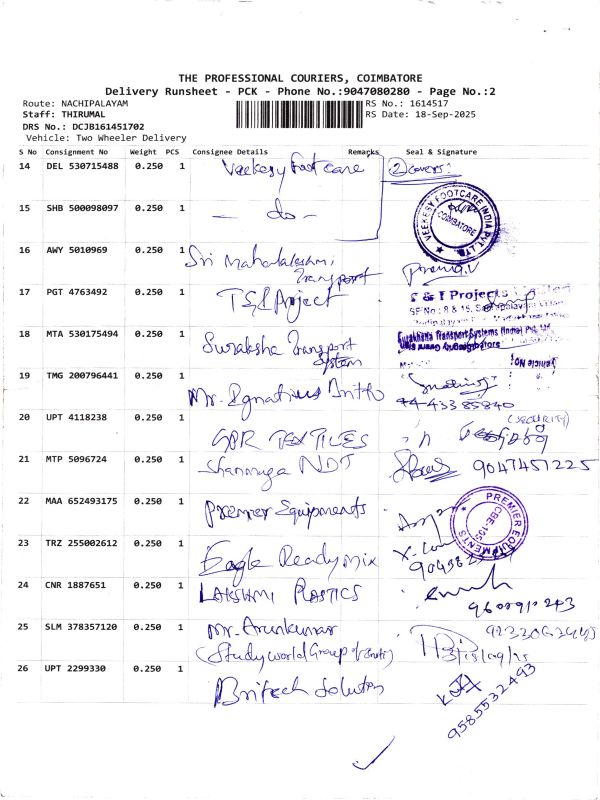 THE PROFESSIONAL COURIERS, COIMBATORE
Delivery Runsheet - PCK - Phone No.:9047080280 - Page No.:2
Route: NACHIPALAYAM RS No.: 1614517
Staff: THIRUMAL RS Date: 18-Sep-2025
DRS No.: DCJB161451702
Vehicle: Two Wheeler Delivery
S No Consignment No Weight PCS Consignee Details Remarks Seal & Signature
14 DEL 530715488 0.250 1 Veekesy Footcare 2 covers
15 SHB 500098097 0.250 1 - do - VEEKESY FOOTCARE INDIA PVT.LTD. COIMBATORE
16 AWY 5010969 0.250 1 Sri Mahalakshmi
Transport
17 PGT 4763492 0.250 1 Project S & T Projects
18 MTA 530175494 0.250 1 Suraksha Transport
System Suraksha Transport Systems
Vehicle No
19 TMG 200796441 0.250 1 Mr. Ignatius
20 UPT 4118238 0.250 1 TEXTILES (SECURITY)
21 MTP 5096724 0.250 1 Shanmuga NDT 9047451225
22 MAA 652493175 0.250 1 Premier Equipments PREMIER EQUIPMENTS
23 TRZ 255002612 0.250 1 Eagle Readymix
24 CNR 1887651 0.250 1 LAKSHMI PLASTICS
25 SLM 378357120 0.250 1 Mr. Arunkumar
(Studyworld Group of 18/09/25
26 UPT 2299330 0.250 1 Britech Solution 9585532493